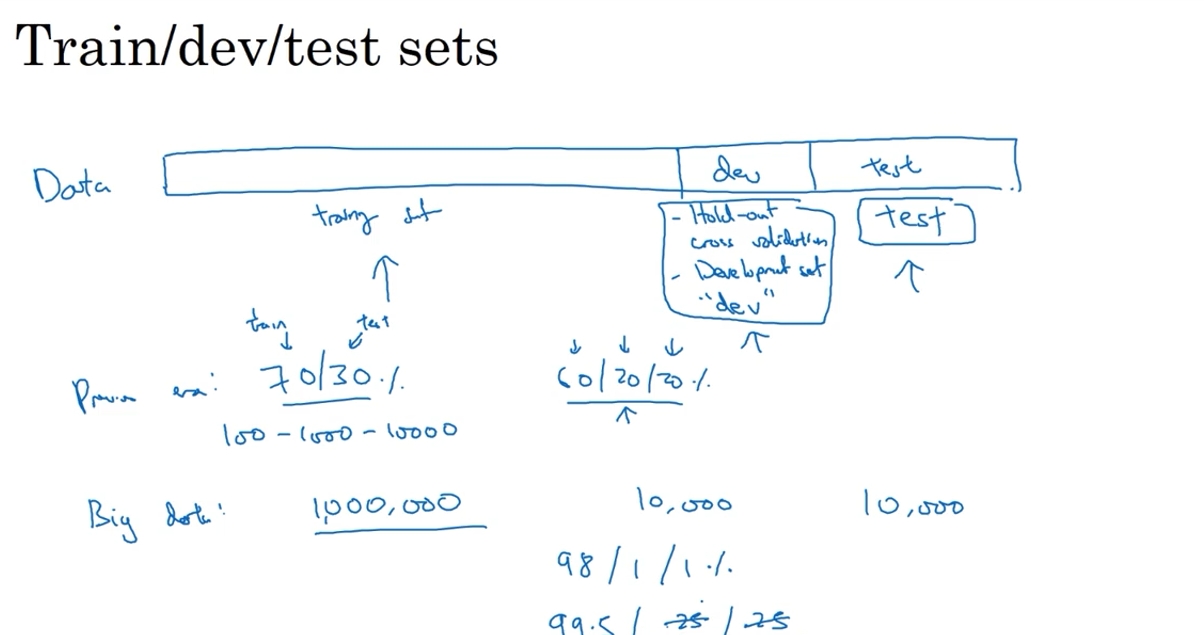 Train/dev/test sets
Data
dev
test
training set
- Hold-out
cross validation
- Development set
"dev"
test
train
test
Previous era:
70/30%
60/20/20%
100 - 1000 - 10000
Big data:
1,000,000
10,000
10,000
98/1/1%
99.5 / 25 / 25